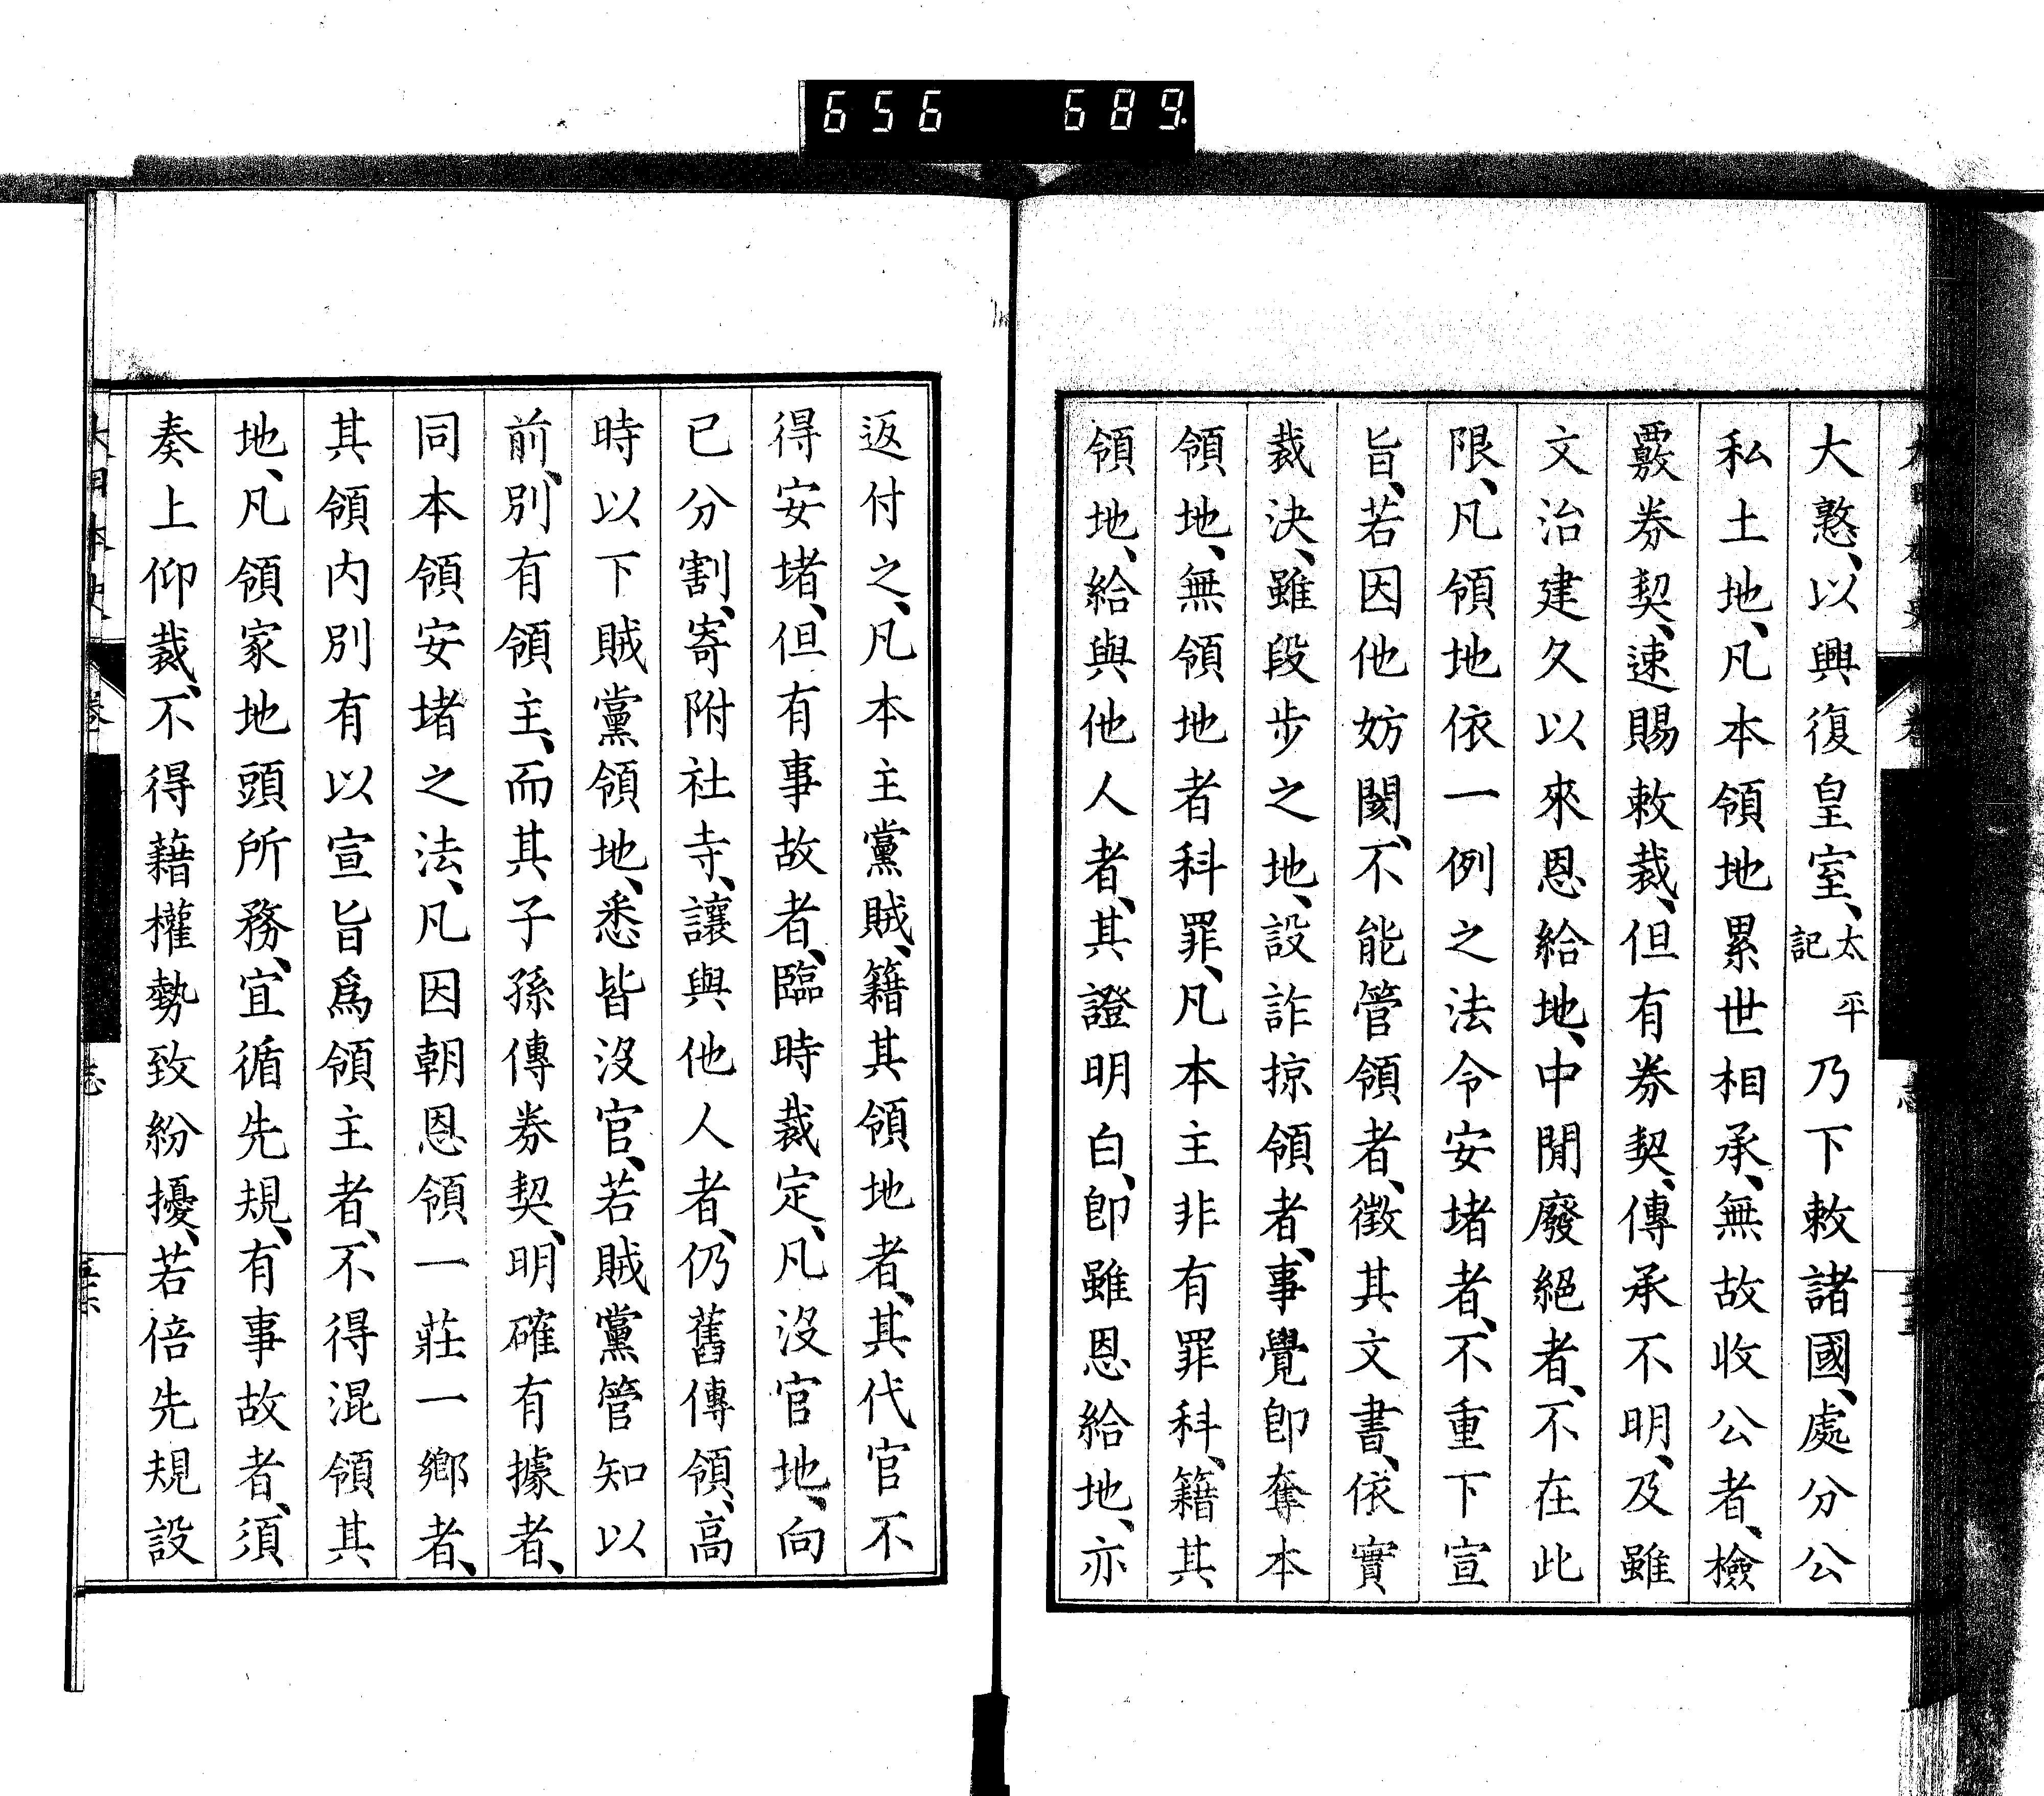 656 689
大憝、以興復皇室、太平記乃下敕諸國、處分公
私土地、凡本領地累世相承、無故收公者、檢
覈券契、速賜敕裁、但有券契、傳承不明、及雖
文治建久以來恩給地、中閒廢絕者、不在此
限、凡領地依一例之法令安堵者、不重下宣
旨、若因他妨閡、不能管領者、徵其文書、依實
裁決、雖段步之地、設詐掠領者、事覺卽奪本
領地、無領地者科罪、凡本主非有罪科、籍其
領地、給與他人者、其證明白、卽雖恩給地、亦
返付之、凡本主黨賊、籍其領地者、其代官不
得安堵、但有事故者、臨時裁定、凡沒官地、向
已分割、寄附社寺、讓與他人者、仍舊傳領、高
時以下賊黨領地、悉皆沒官、若賊黨管知以
前、別有領主、而其子孫傳券契、明確有據者、
同本領安堵之法、凡因朝恩領一莊一鄉者、
其領內別有以宣旨爲領主者、不得混領其
地、凡領家地頭所務、宜循先規、有事故者、須
奏上仰裁、不得藉權勢致紛擾、若倍先規設